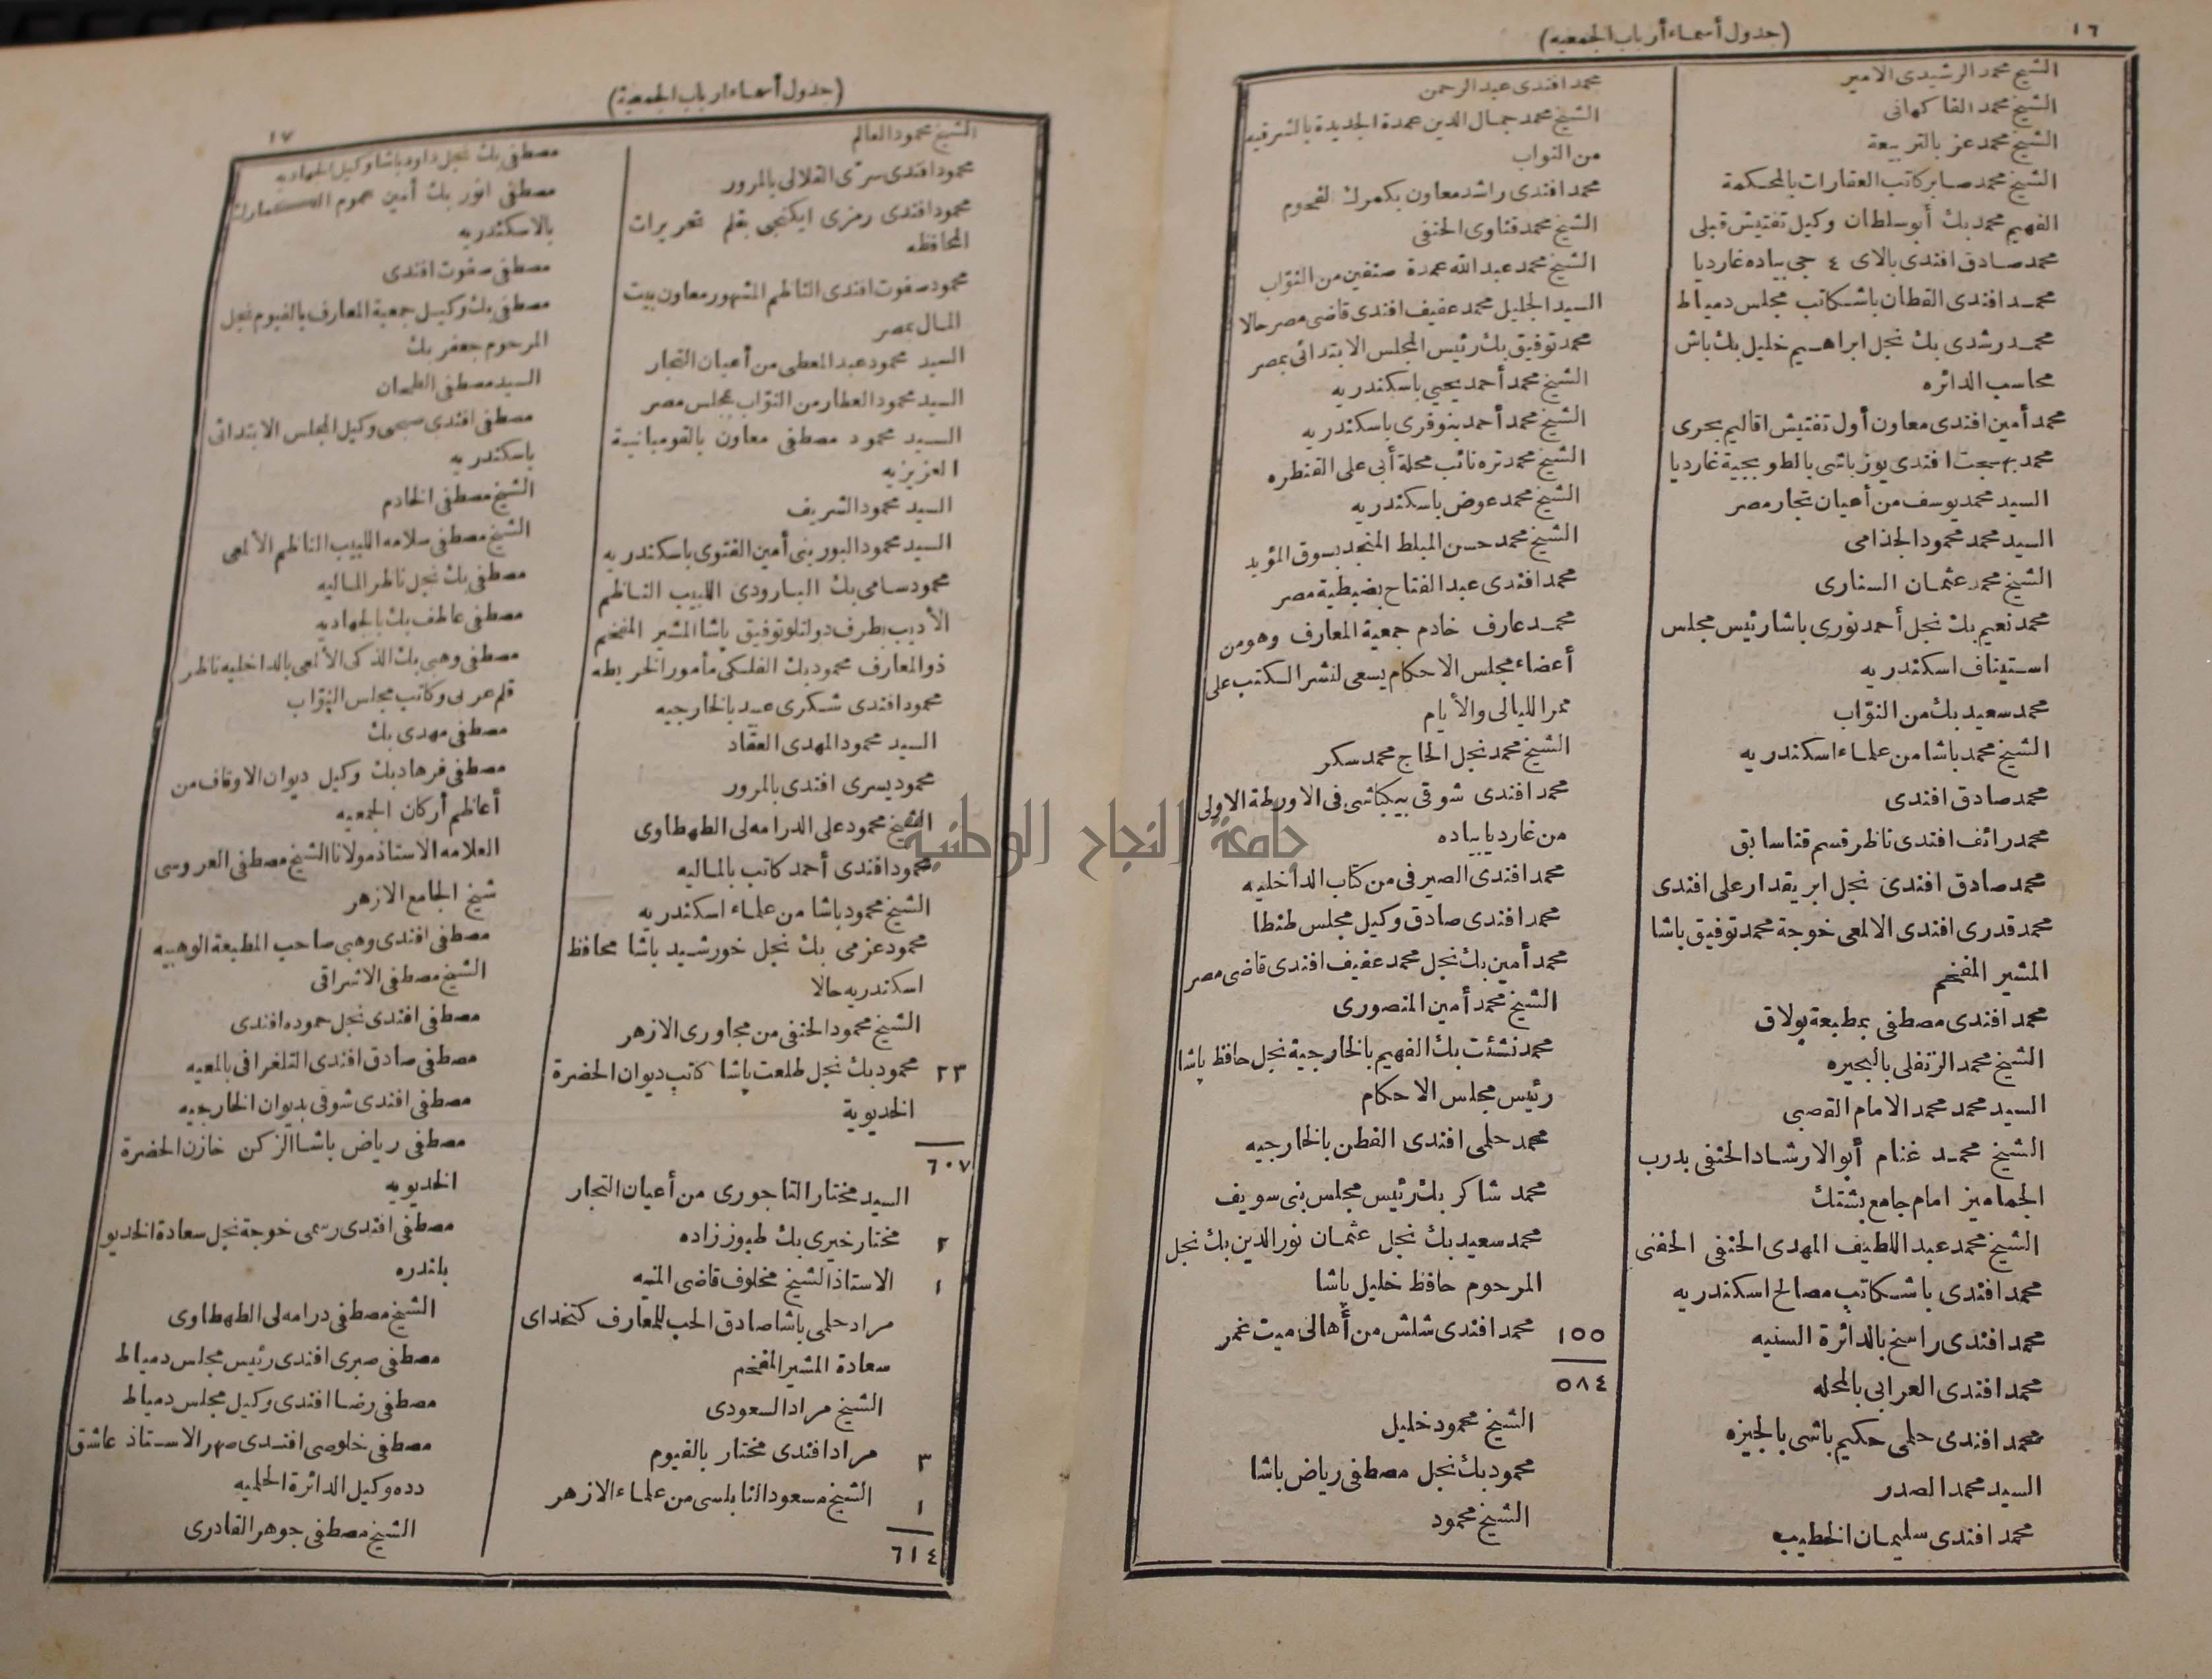 ١٦
(جدول أسماء أرباب الجمعيه)
الشيخ محمد الرشيدى الامير
الشيخ محمد الفاكهانى
الشيخ محمد عز بالتربيعة
الشيخ محمد صابر كاتب العقارات بالمحكمة
الفهيم محمد بك أبو سلطان وكيل تفتيش قبلى
محمد صادق افندى بالاى ٤ جى بياده غارديا
محمد افندى القطان باشكاتب مجلس دمياط
محمد رشدى بك نجل ابراهيم خليل بك باش
محاسب الدائره
محمد أمين افندى معاون أول تفتيش اقاليم بحرى
محمد بهجت افندى يوزباشى بالطوبجية غارديا
السيد محمد يوسف من أعيان تجار مصر
السيد محمد محمود الجذامى
الشيخ محمد عثمان السنارى
محمد نعيم بك نجل أحمد نورى باشا رئيس مجلس
استيناف اسكندريه
محمد سعيد بك من النوّاب
الشيخ محمد باشا من علماء اسكندريه
محمد صادق افندى
محمد رائف افندى ناظر قسم قنا سابق
محمد صادق افندى نجل ابريقدار على افندى
محمد قدرى افندى الالمعى خوجة محمد توفيق باشا
المشير المفخم
محمد افندى مصطفى بمطبعة بولاق
الشيخ محمد الزنفلى بالبحيره
السيد محمد محمد الامام القصبى
الشيخ محمد غنام أبو الارشاد الحنفى بدرب
الجماميز امام جامع بشتك
الشيخ محمد عبد اللطيف المهدى الحنفى الحفنى
محمد افندى باشكاتب مصالح اسكندريه
محمد افندى راسخ بالدائرة السنيه
محمد افندى العرابى بالمحله
محمد افندى حلمى حكيم باشى بالجيزه
السيد محمد الصدر
محمد افندى سليمان الخطيب
محمد افندى عبد الرحمن
الشيخ محمد جمال الدين عمدة الجديدة بالشرقيه
من النواب
محمد افندى راشد معاون بكمرك الفحوم
الشيخ محمد قناوى الحنفى
الشيخ محمد عبد الله عمدة صنفين من النوّاب
السيد الجليل محمد عفيف افندى قاضى مصر حالا
محمد توفيق بك رئيس المجلس الابتدائى بمصر
الشيخ محمد أحمد يحيى باسكندريه
الشيخ محمد أحمد بنوفرى باسكندريه
الشيخ محمد تره نائب محلة أبى على القنطره
الشيخ محمد عوض باسكندريه
الشيخ محمد حسن المبلط المنجد بسوق المؤيد
محمد افندى عبد الفتاح بضبطية مصر
محمد عارف خادم جمعية المعارف وهو من
أعضاء مجلس الاحكام يسعى لنشر الكتب على
ممر الليالى والأيام
الشيخ محمد نجل الحاج محمد سكر
محمد افندى شوقى بيكباشى فى الاورطة الاولى
من غارديا بياده
محمد افندى الصيرفى من كتاب الداخليه
محمد افندى صادق وكيل مجلس طنطا
محمد أمين بك نجل محمد عفيف افندى قاضى مصر
الشيخ محمد أمين المنصورى
محمد نشئت بك الفهيم بالخارجية نجل حافظ باشا
رئيس مجلس الاحكام
محمد حلمى افندى الفطن بالخارجيه
محمد شاكر بك رئيس مجلس بنى سويف
محمد سعيد بك نجل عثمان نور الدين بك نجل
المرحوم حافظ خليل باشا
١٥٥ محمد افندى شلش من أهالى ميت غمر
٥٨٤
الشيخ محمود خليل
محمود بك نجل مصطفى رياض باشا
الشيخ محمود
(جدول أسماء ارباب الجمعية)
١٧
الشيخ محمود العالم
محمود افندى سرّى القلالى بالمرور
محمود افندى رمزى ايكنجى بقلم تحريرات
المحافظه
محمود صفوت افندى الناظم المشهور معاون بيت
المال بمصر
السيد محمود عبد المعطى من أعيان التجار
السيد محمود العطار من النوّاب بمجلس مصر
السيد محمود مصطفى معاون بالقومبانية
العزيزيه
السيد محمود الشريف
السيد محمود البوربنى أمين الفتوى باسكندريه
محمود سامى بك البارودى اللبيب الناظم
الأديب بطرف دولتلو توفيق باشا المشير المفخم
ذو المعارف محمود بك الفلكى مأمور الخريطه
محمود افندى شكرى عبد بالخارجيه
السيد محمود المهدى العقاد
محمود يسرى افندى بالمرور
الشيخ محمود على الدرامه لى الطهطاوى
محمود افندى أحمد كاتب بالماليه
الشيخ محمود باشا من علماء اسكندريه
محمود عزمى بك نجل خورشيد باشا محافظ
اسكندريه حالا
الشيخ محمود الحنفى من مجاورى الازهر
٢٣ محمود بك نجل طلعت باشا كاتب ديوان الحضرة
الخديوية
٦٠٧
السيد مختار التاجورى من أعيان التجار
٢ مختار خيرى بك طبوز زاده
١ الاستاذ الشيخ مخلوف قاضى المنيه
مراد حلمى باشا صادق الحب للمعارف كتخداى
سعادة المشير المفخم
الشيخ مراد السعودى
٣ مراد افندى مختار بالفيوم
١ الشيخ مسعود النابلسى من علماء الازهر
٦١٤
مصطفى بك نجل داود باشا وكيل الجهاديه
مصطفى انور بك أمين عموم
بالاسكندريه
مصطفى صفوت افندى
مصطفى بك وكيل جمعية المعارف بالفيوم نجل
المرحوم جعفر بك
السيد مصطفى الطحان
مصطفى افندى صبحى وكيل المجلس الابتدائى
باسكندريه
الشيخ مصطفى الخادم
الشيخ مصطفى سلامه اللبيب الناظم الألمعى
مصطفى بك نجل ناظر الماليه
مصطفى عاطف بك بالجهاديه
مصطفى وهبى بك الذكى الألمعى بالداخليه ناظر
قلم عربى وكاتب مجلس النوّاب
مصطفى مهدى بك
مصطفى فرهاد بك وكيل ديوان الاوقاف من
أعاظم أركان الجمعيه
العلامه الاستاذ مولانا الشيخ مصطفى العروسى
شيخ الجامع الازهر
مصطفى افندى وهبى صاحب المطبعة الوهبيه
الشيخ مصطفى الاشراقى
مصطفى افندى نجل حموده افندى
مصطفى صادق افندى التلغرافى بالمعيه
مصطفى افندى شوقى بديوان الخارجيه
مصطفى رياض باشا الزكن خازن الحضرة
الخديويه
مصطفى افندى رسمى خوجة نجل سعادة الخديو
بلندره
الشيخ مصطفى درامه لى الطهطاوى
مصطفى صبرى افندى رئيس مجلس دمياط
مصطفى رضا افندى وكيل مجلس دمياط
مصطفى خلوصى افندى صهر الاستاذ عاشق
دده وكيل الدائرة الحلميه
الشيخ مصطفى جوهر القادرى
جامعة النجاح الوطنية